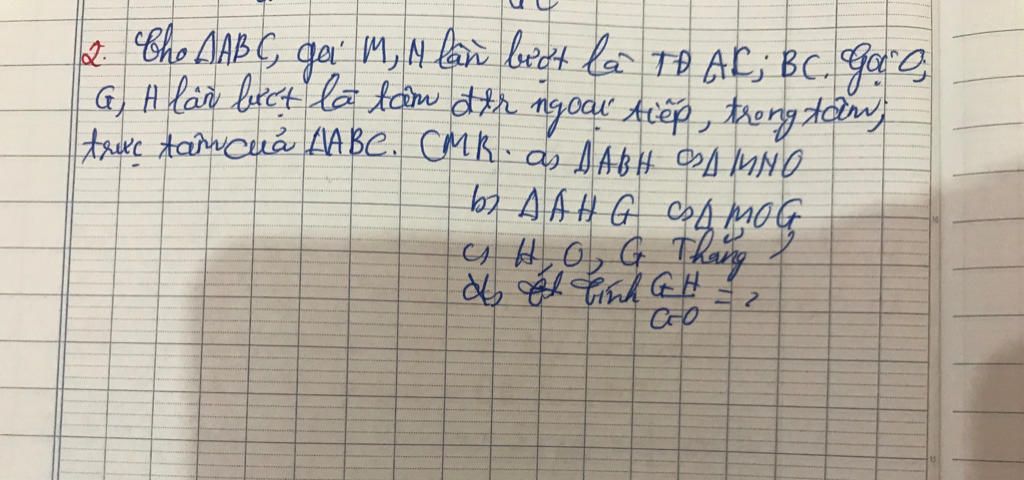 2. Cho ΔABC, gọi M, N lần lượt là TĐ AC; BC. Gọi O;
G, H lần lượt là tâm đtr ngoại tiếp, trọng tâm,
trực tâm của ΔABC. CMR. a, ΔABH ∽Δ MNO
b, ΔAHG ∽Δ MOG
c, H, O, G Thẳng
d, tính GH/GO = ?